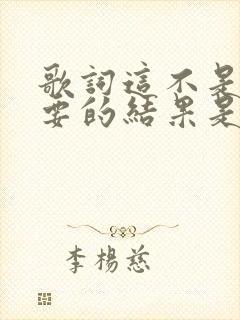 歌詞這不是
要的結果是
李楊慈